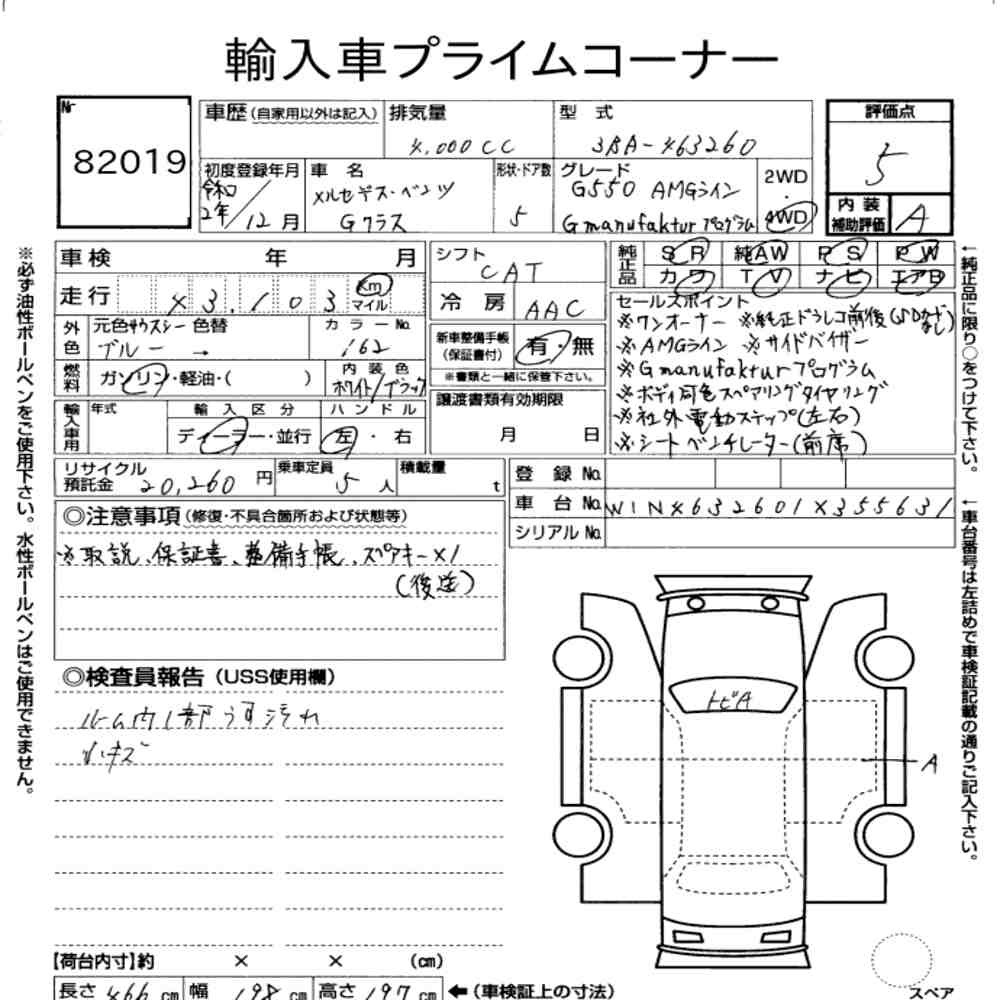 輸入車プライムコーナー
№ 82019
車歴(自家用以外は記入) 排気量 4,000CC 型式 3BA-463260
評価点 5
初度登録年月 令和2年/12月 車名 メルセデス・ベンツ Gクラス 形状・ドア数 5 グレード G550 AMGライン Gmanufaktur プログラム 2WD 4WD
内装補助評価 A
車検 年 月
シフト CAT
純正品 SR 純AW PS PW
カワ TV ナビ エアB
走行 43,103 km マイル
冷房 AAC
外色 元色 色替 ブルー → カラーNo. 162
新車整備手帳(保証書付) 有・無
※書類と一緒に保管下さい。
燃料 ガソリン・軽油・( ) 内装色 ホワイト/ブラック
セールスポイント
※ワンオーナー ※純正ドラレコ前後(SDカードなし)
※AMGライン ※サイドバイザー
※Gmanufakturプログラム
※ボディ同色スペアリングタイヤリング
※社外電動ステップ(左右)
※シートベンチレーター(前席)
輸入車用 年式 輸入区分 ディーラー・並行 ハンドル 左・右
譲渡書類有効期限 月 日
リサイクル預託金 20,260円 乗車定員 5人 積載量 t
登録No.
車台No. W1N4632601X355631
シリアルNo.
◎注意事項(修復・不具合箇所および状態等)
※取説、保証書、整備手帳、スペアキー×1
(後送)
◎検査員報告(USS使用欄)
ルーム内1部うす汚れ
小キズ
トビA
A
【荷台内寸】約 × × (cm)
長さ 466 cm 幅 198 cm 高さ 197 cm ←(車検証上の寸法)
スペア
※必ず油性ボールペンをご使用下さい。水性ボールペンはご使用できません。
←純正品に限り○をつけて下さい。
←車台番号は左詰めで車検証記載の通りご記入下さい。